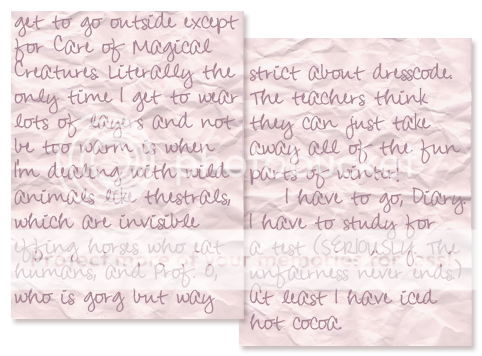 get to go outside except
for Care of Magical
Creatures Literally the
only time I get to wear
lots of layers and not
be too warm is when
I'm dealing with wild
animals like thestrals,
which are invisible
effing horses who eat
humans, and Prof. O,
who is gorg but way
strict about dresscode.
The teachers think
they can just take
away all of the fun
parts of winter!
I have to go, Diary.
I have to study for
a test (SERIOUSLY. The
unfairness never ends.)
At least I have iced
hot cocoa.